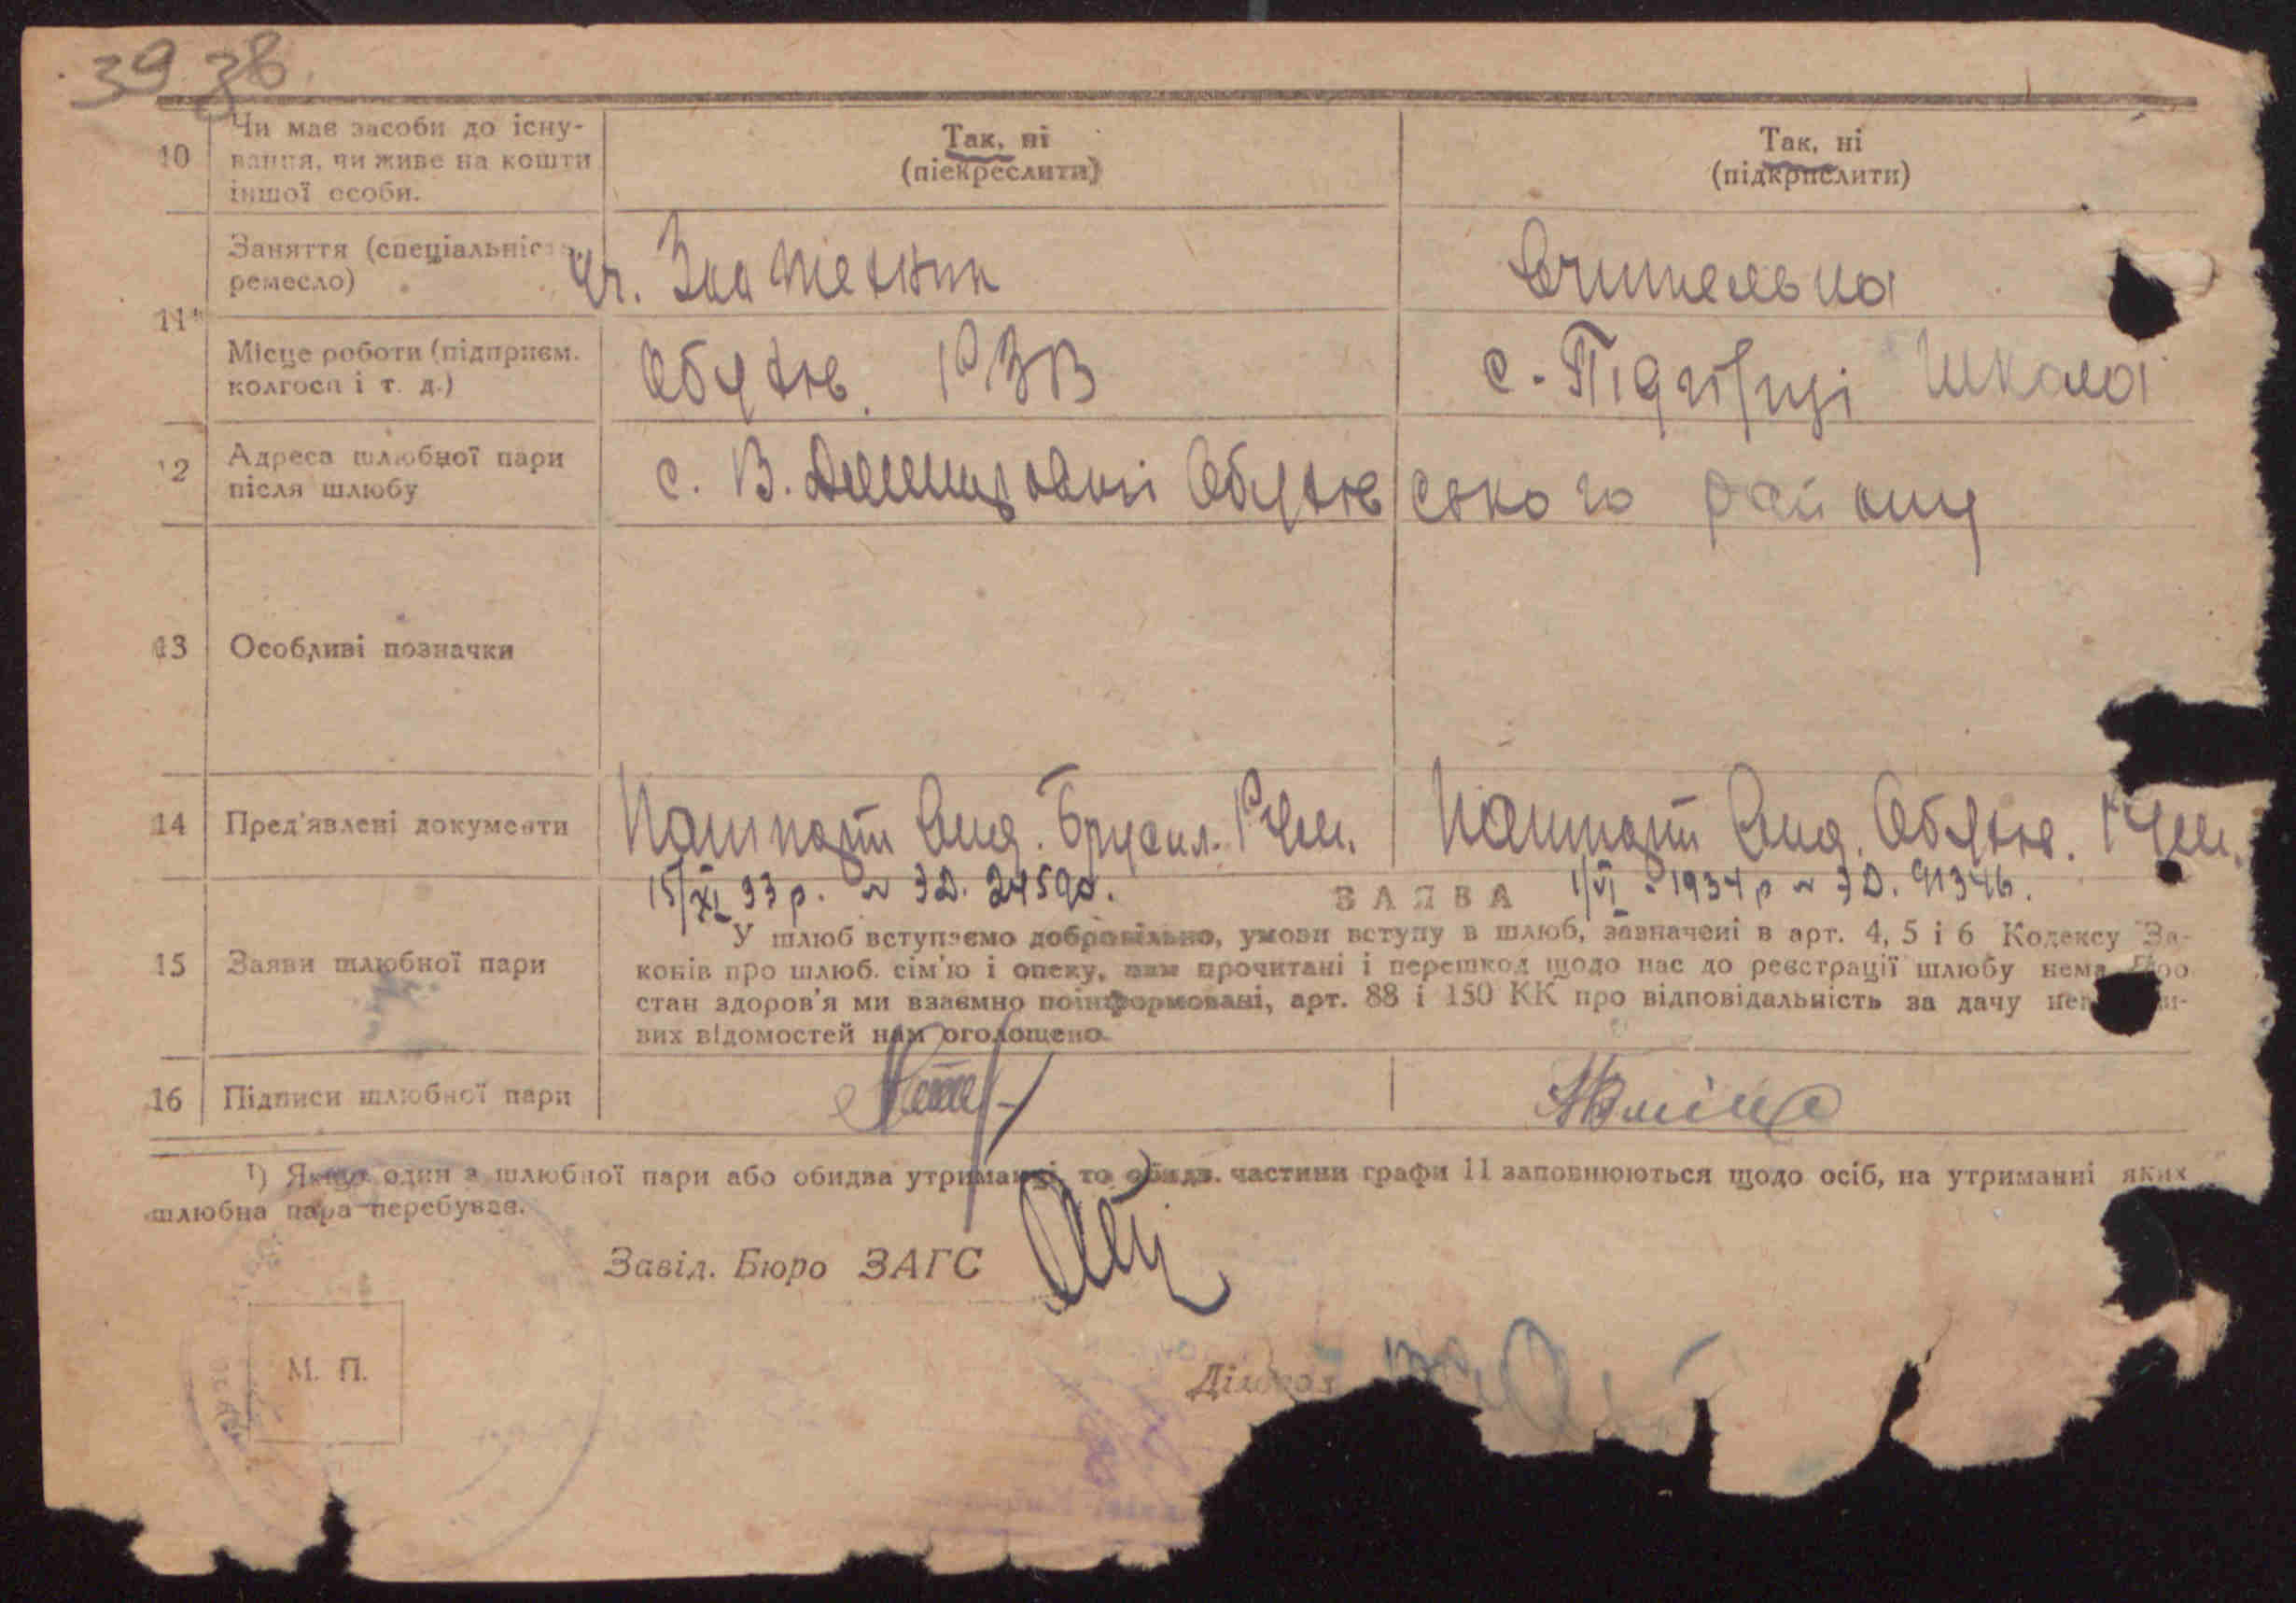 39 38
10 Чи має засоби до існу-
вання, чи живе на кошти
іншої особи.
Так, ні
(піекреслити)
Так, ні
(підкрислити)
11
Заняття (спеціальність,
ремесло)
Вчителька
Місце роботи (підприєм.
колгосп і т. д.)
Обухів. РЗВ
с. Підгірці Школа
12 Адреса шлюбної пари
після шлюбу
с. В. Дмитровичі Обухівського району
13 Особливі позначки
14 Пред'явлені документи
Пашпорт Вид. Брусил. РЧМ.
15/XI 33 р. ЗД. 24590.
Пашпорт Вид. Обухів. РЧМ.
1/VI - 1934 р ЗД. 91346.
ЗАЯВА
15 Заяви шлюбної пари
У шлюб вступаємо добровільно, умови вступу в шлюб, зазначені в арт. 4, 5 і 6 Кодексу За-
конів про шлюб. сім'ю і опеку, нам прочитані і перешкод щодо нас до реєстрації шлюбу нема
стан здоров'я ми взаємно поінформовані, арт. 88 і 150 КК про відповідальність за дачу
вих відомостей нам оголошено.
16 Підписи шлюбної пари
1) Якщо один з шлюбної пари або обидва утриманці, то обидв. частини графи 11 заповнюються щодо осіб, на утриманні яких
шлюбна пара перебуває.
Завід. Бюро ЗАГС
М. П.